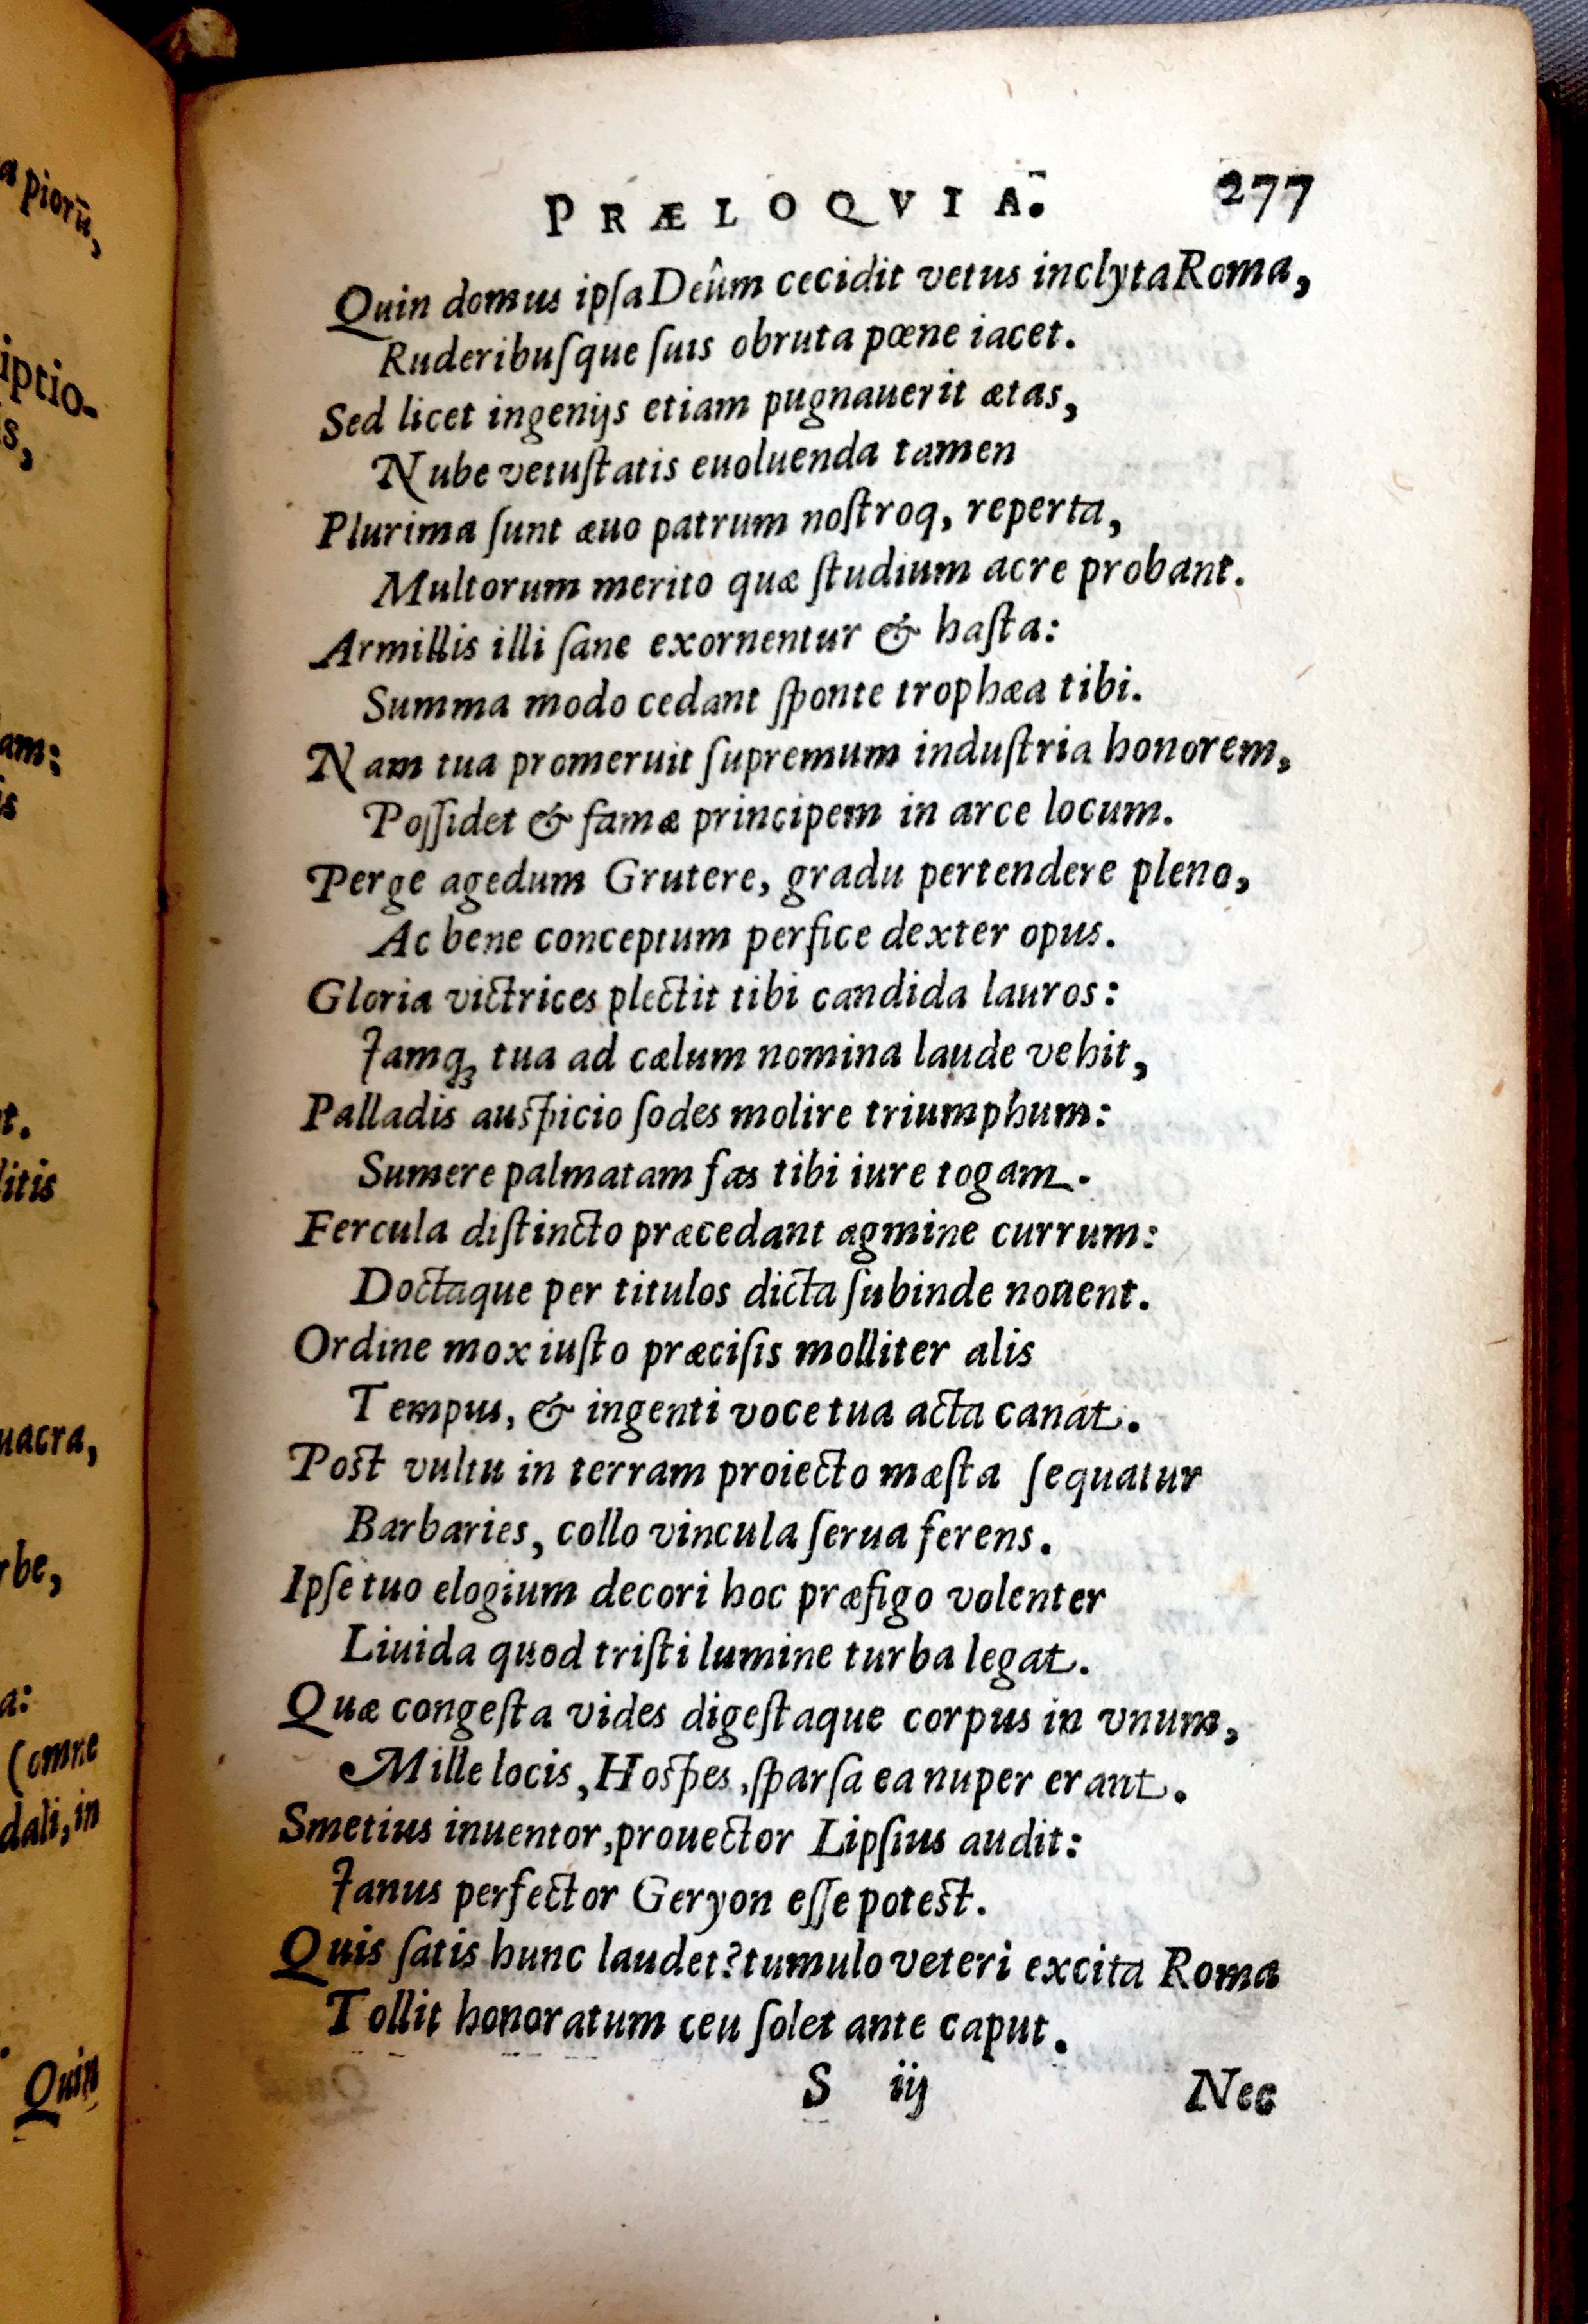 PRÆLOQVIA. 277
Quin domus ipſa Deûm cecidit vetus inclyta Roma,
Ruderibuſque ſuis obruta pœne iacet.
Sed licet ingenijs etiam pugnauerit ætas,
Nube vetuſtatis euoluenda tamen
Plurima ſunt æuo patrum noſtroq, reperta,
Multorum merito quæ ſtudium acre probant.
Armillis illi ſane exornentur & haſta:
Summa modo cedant ſponte trophæa tibi.
Nam tua promeruit ſupremum induſtria honorem,
Poſſidet & famæ principem in arce locum.
Perge agedum Grutere, gradu pertendere pleno,
Ac bene conceptum perfice dexter opus.
Gloria victrices plectit tibi candida lauros:
Jamq; tua ad cælum nomina laude vehit,
Palladis auspicio ſodes molire triumphum:
Sumere palmatam fas tibi iure togam.
Fercula diſtincto præcedant agmine currum:
Doctaque per titulos dicta ſubinde nouent.
Ordine mox iuſto præciſis molliter alis
Tempus, & ingenti voce tua acta canat.
Post vultu in terram proiecto mæſta ſequatur
Barbaries, collo vincula ſerua ferens.
Ipſe tuo elogium decori hoc præfigo volenter
Liuida quod triſti lumine turba legat.
Quæ congeſta vides digeſtaque corpus in vnum,
Mille locis, Hospes, ſparſa ea nuper erant.
Smetius inuentor, prouector Lipſius audit:
Janus perfector Geryon eſſe potest.
Quis ſatis hunc laudet? tumulo veteri excita Roma
Tollit honoratum ceu ſolet ante caput.
S iij Nec
piorū,
iptio-
s,
am:
is
t.
litis
uacra,
rbe,
a:
(omne
dali, in
Quin